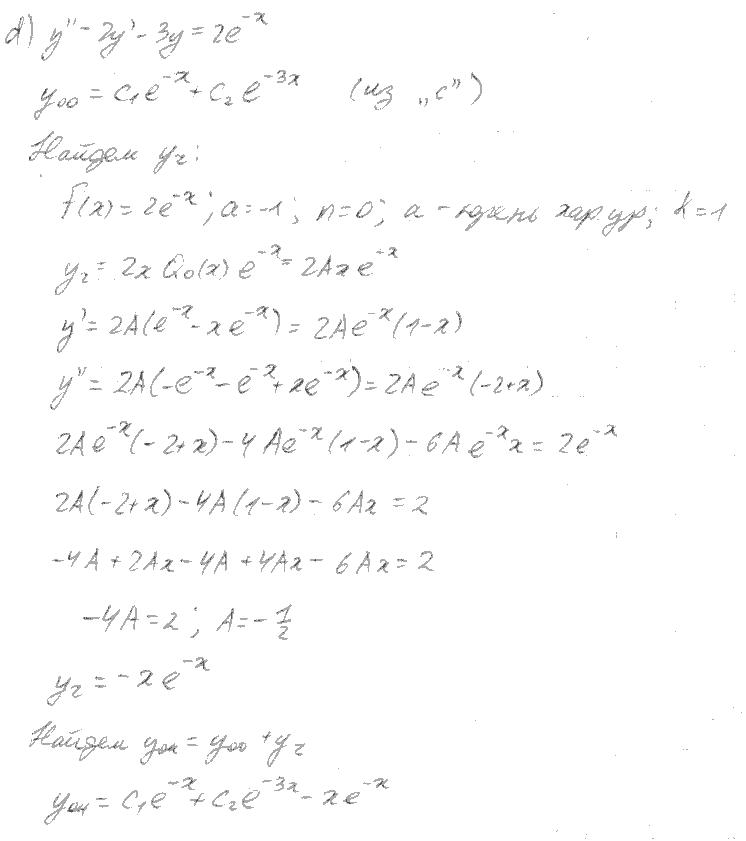 d) y'' - 2y' - 3y = 2e^{-x}
y_{00} = C_1e^{-x} + C_2e^{-3x} (из „с")
Найдем y_ч:
f(x) = 2e^{-x}; a = -1; n = 0; a - корень хар. ур; k = 1
y_ч = 2x Q_0(x) e^{-x} = 2Axe^{-x}
y' = 2A(e^{-x} - xe^{-x}) = 2Ae^{-x}(1-x)
y'' = 2A(-e^{-x} - e^{-x} + xe^{-x}) = 2Ae^{-x}(-2+x)
2Ae^{-x}(-2+x) - 4Ae^{-x}(1-x) - 6Ae^{-x}x = 2e^{-x}
2A(-2+x) - 4A(1-x) - 6Ax = 2
-4A + 2Ax - 4A + 4Ax - 6Ax = 2
-4A = 2; A = -\frac{1}{2}
y_ч = -xe^{-x}
Найдем y_{он} = y_{00} + y_ч
y_{он} = C_1e^{-x} + C_2e^{-3x} - xe^{-x}